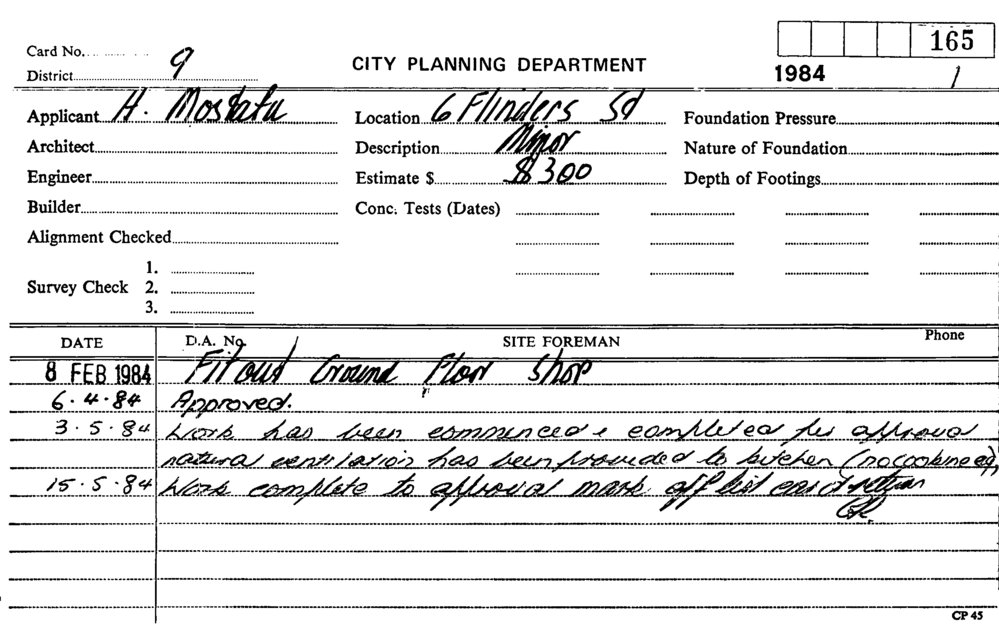 165
Card No.
9
District
CITY PLANNING DEPARTMENT
1984 1
Applicant H.
Location 6 Flinders St
Foundation Pressure
Architect
Description Minor
Nature of Foundation
Engineer
Estimate $ $300
Depth of Footings
Builder
Conc. Tests (Dates)
Alignment Checked
1.
Survey Check 2.
3.
DATE D.A. No. SITE FOREMAN Phone
8 FEB 1984 Fitout Ground Floor Shop
6.4.84 Approved.
3.5.84 Work has been commenced & completed as approval
natural ventilation has been provided to kitchen (no cooking
15.5.84 Work complete to approval mark off list card return
CP 45